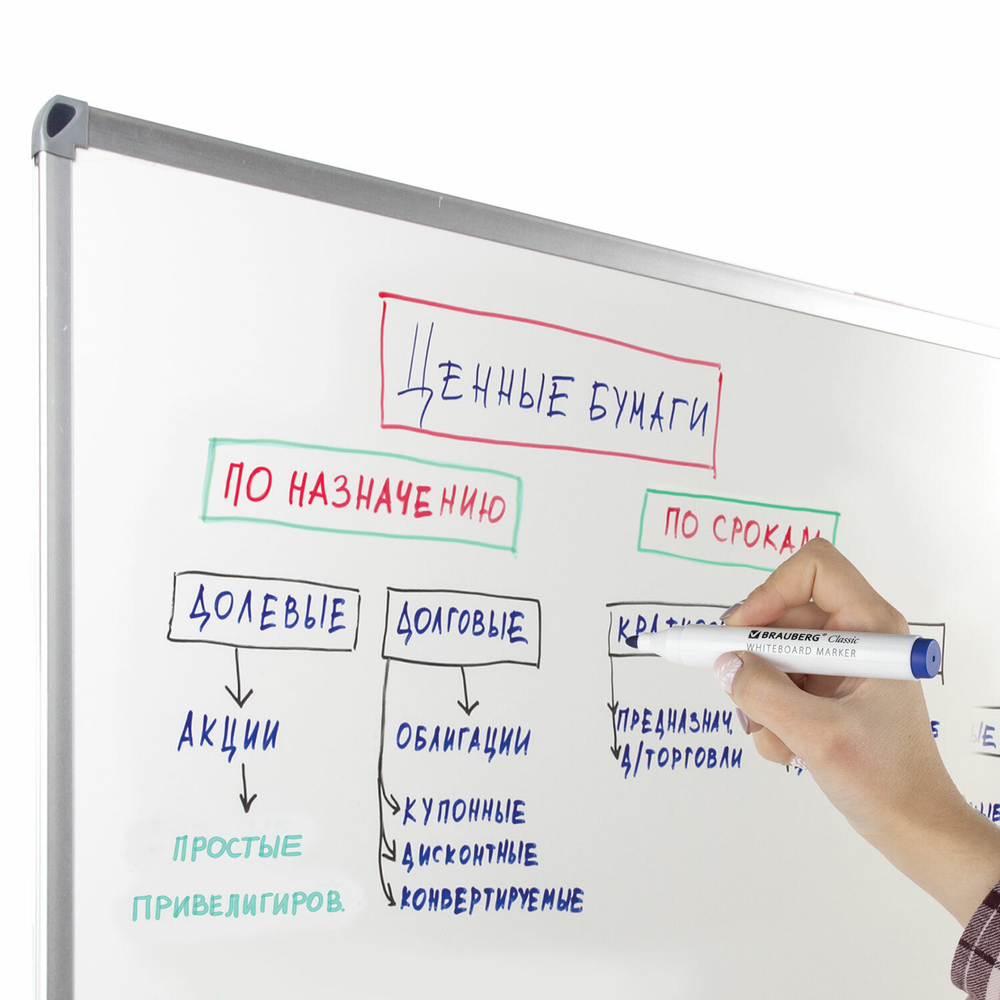 ЦЕННЫЕ БУМАГИ
ПО НАЗНАЧЕНИЮ
ПО СРОКАМ
ДОЛЕВЫЕ
ДОЛГОВЫЕ
АКЦИИ
ПРОСТЫЕ
ПРИВЕЛИГИРОВ.
ОБЛИГАЦИИ
КУПОННЫЕ
ДИСКОНТНЫЕ
КОНВЕРТИРУЕМЫЕ
ПРЕДНАЗНАЧ.
Д/ТОРГОВЛИ
BRAUBERG® Classic
WHITEBOARD MARKER